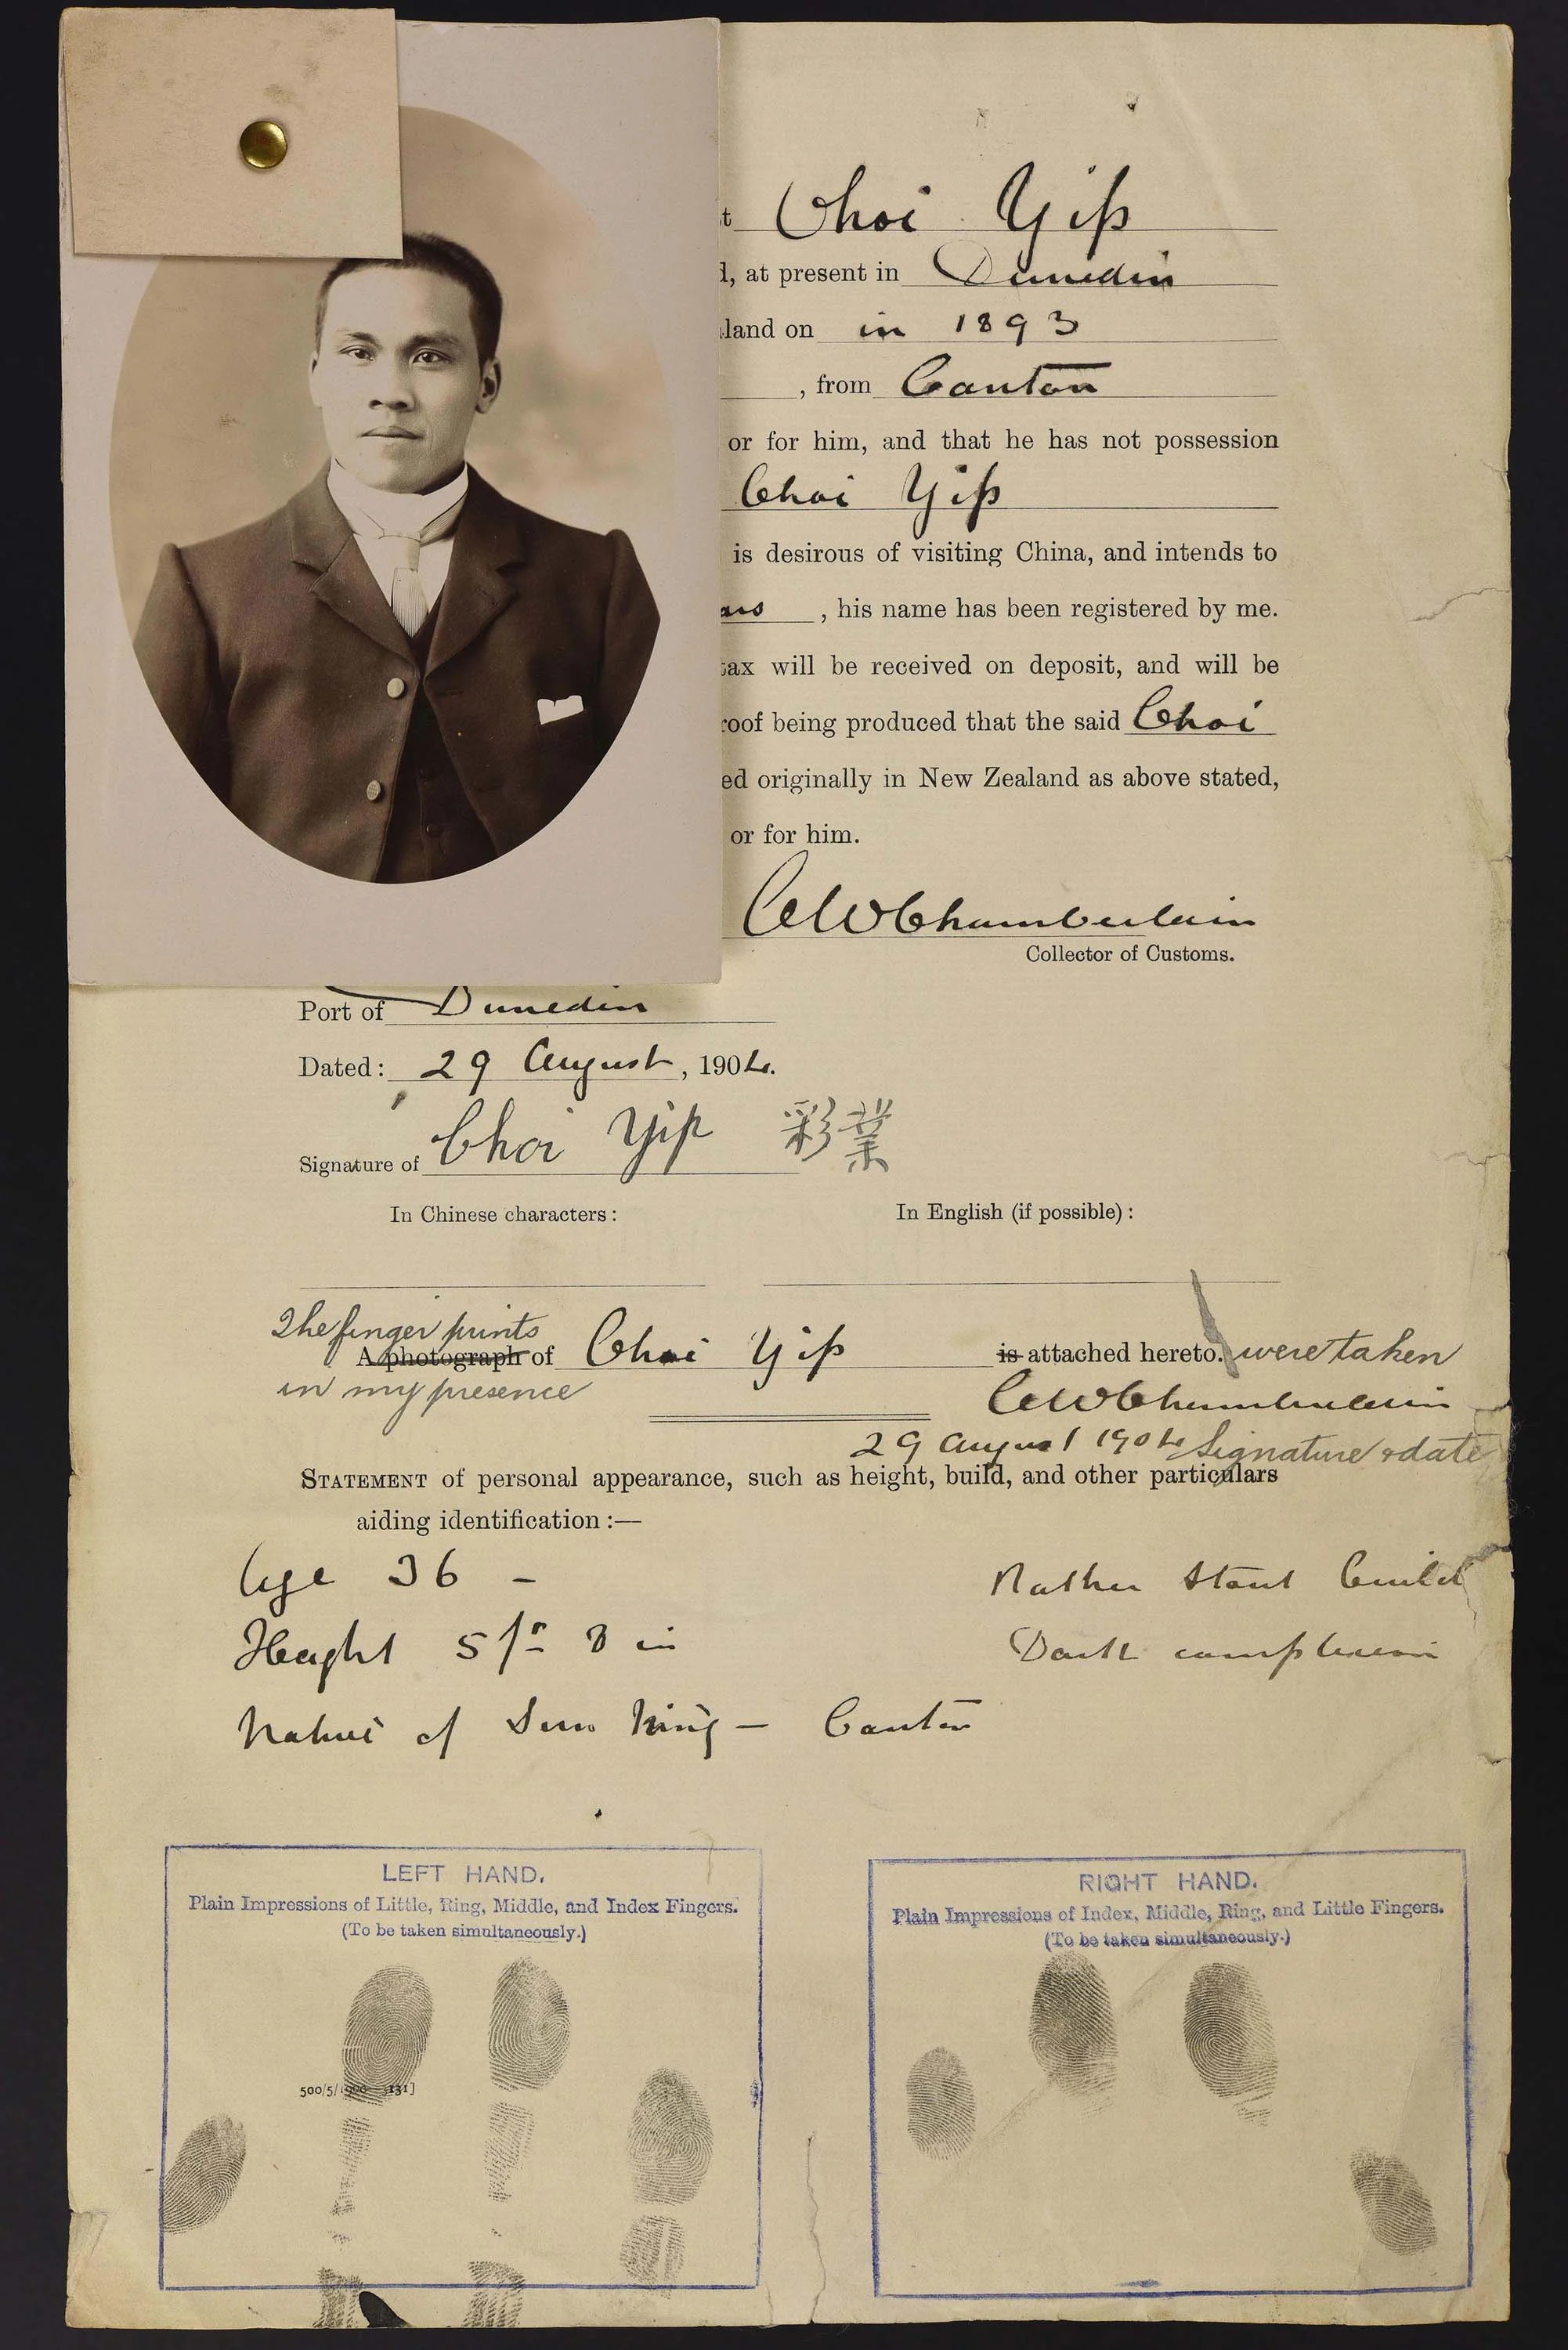 t Choi Yip
d, at present in Dunedin
land on in 1893
, from Canton
or for him, and that he has not possession
Choi Yip
is desirous of visiting China, and intends to
ars , his name has been registered by me.
tax will be received on deposit, and will be
roof being produced that the said Choi
ed originally in New Zealand as above stated,
or for him.
CW Chamberlain
Collector of Customs.
Port of Dunedin
Dated: 29 August, 1904.
Signature of Choi Yip 彩業
In Chinese characters: In English (if possible):
The finger prints
A photograph of Choi Yip is attached hereto. were taken
in my presence CW Chamberlain
29 August 1904 Signature & date
STATEMENT of personal appearance, such as height, build, and other particulars
aiding identification:—
Age 36 – Rather Stout build
Height 5 ft 3 in Dark complexion
Native of Sun Ning – Canton
LEFT HAND.
Plain Impressions of Little, Ring, Middle, and Index Fingers.
(To be taken simultaneously.)
RIGHT HAND.
Plain Impressions of Index, Middle, Ring, and Little Fingers.
(To be taken simultaneously.)
500/5/1900